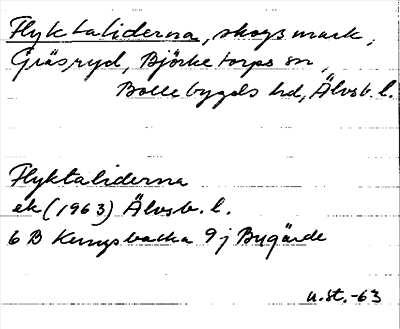 Flyktaliderna, skogsmark,
Gräsryd, Björketorps sn,
Bollebygds hd, Älvsb. l.
Flyktaliderna
ek (1963) Älvsb. l.
6 B Kungsbacka 9 j Bugärde
u.st. -63